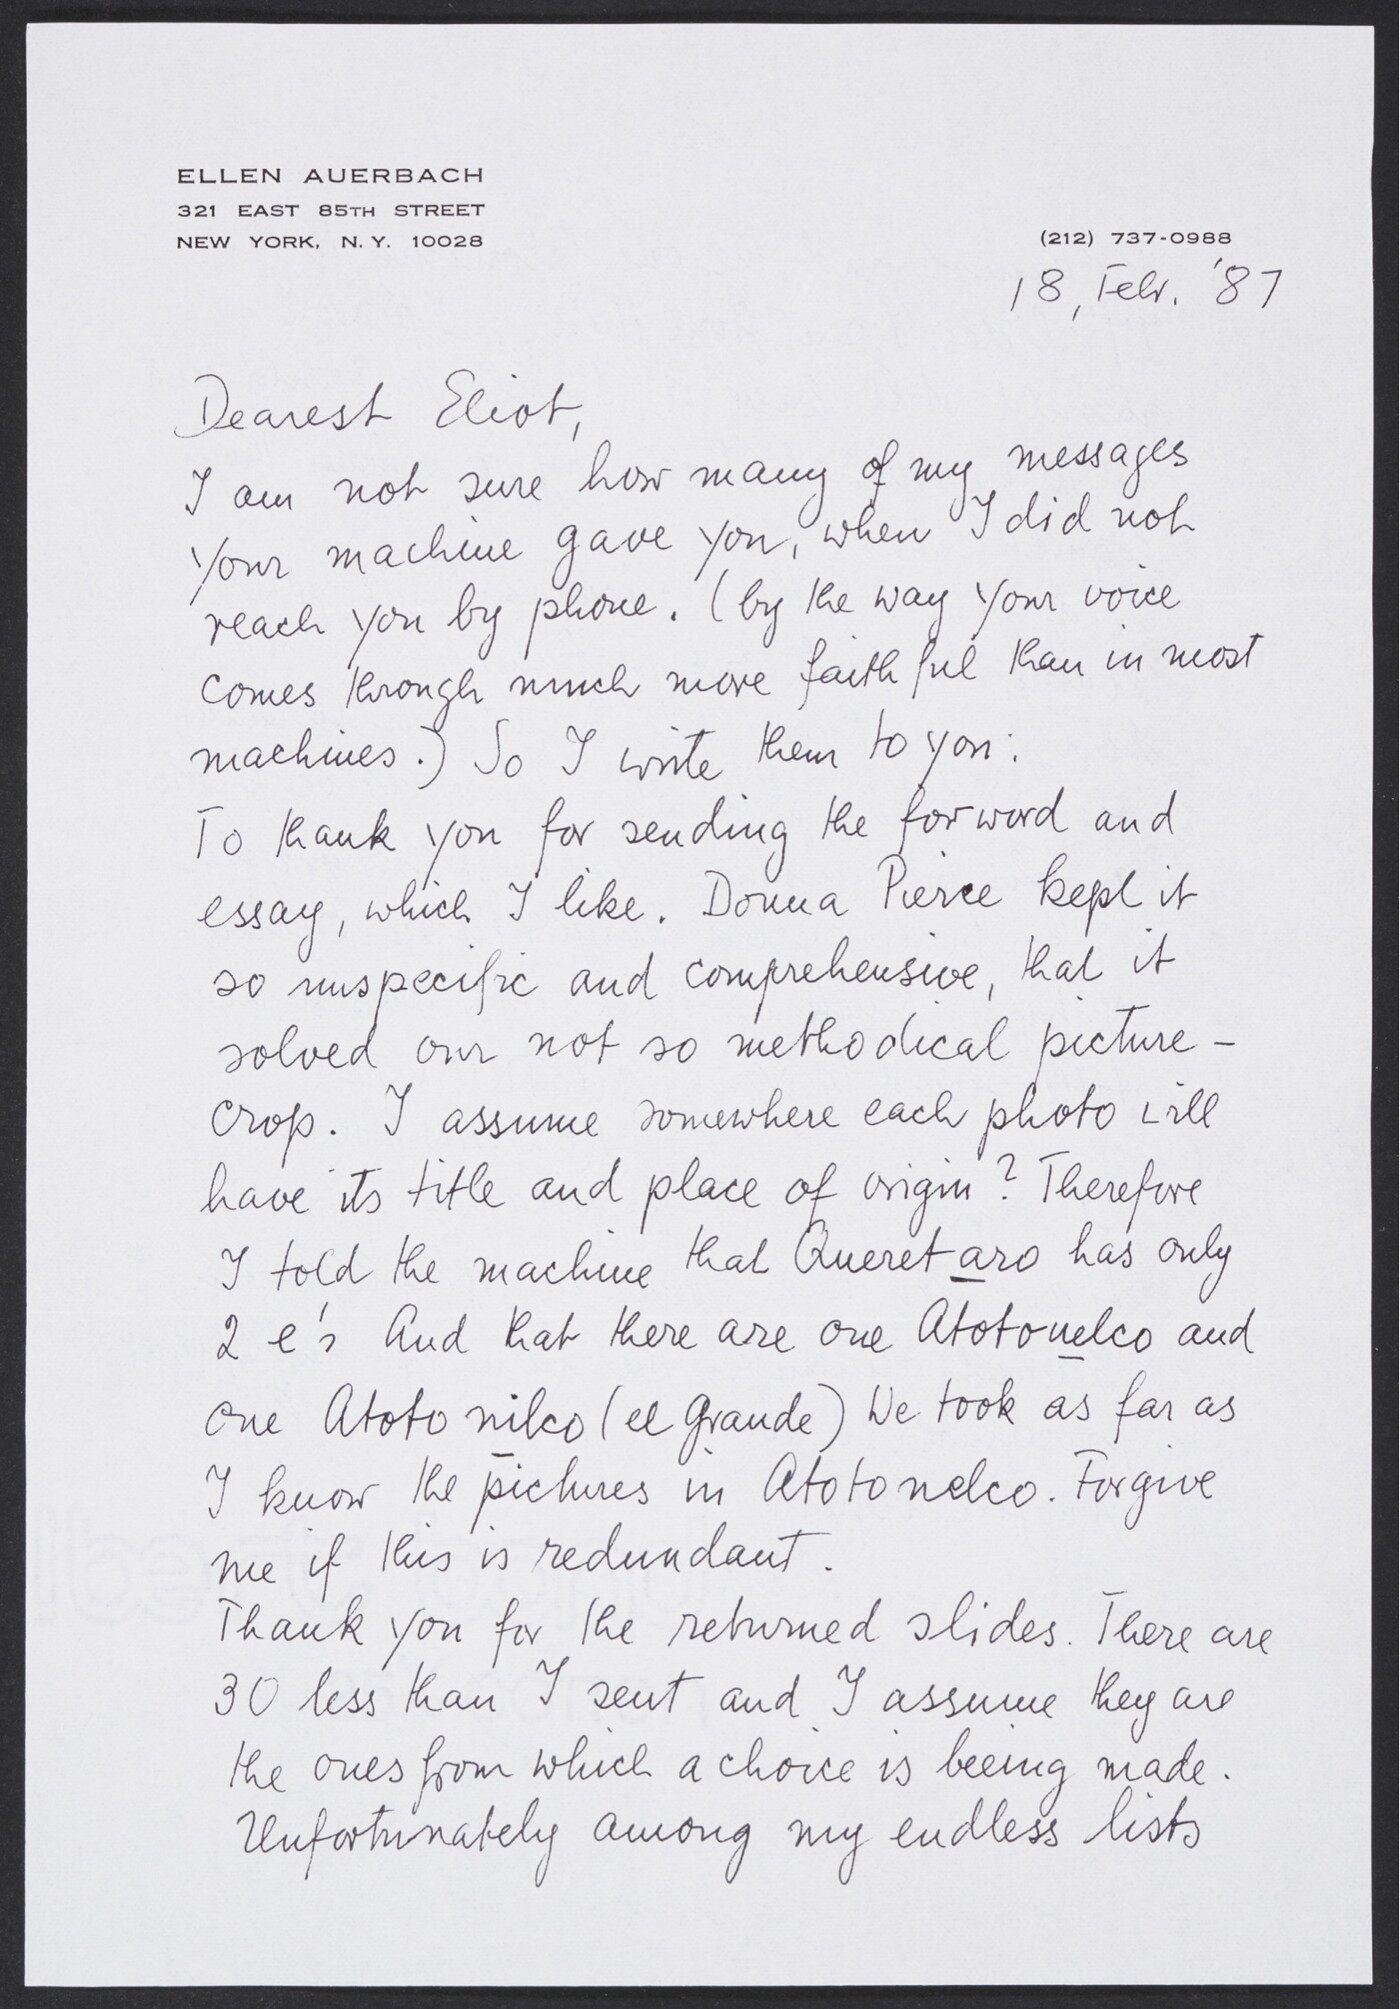 ELLEN AUERBACH
321 EAST 85TH STREET
NEW YORK, N.Y. 10028
(212) 737-0988
18, Febr. '87
Dearest Eliot,
I am not sure how many of my messages
your machine gave you, when I did not
reach you by phone. (by the way your voice
comes through much more faithful than in most
machines.) So I write them to you:
To thank you for sending the forword and
essay, which I like. Donna Pierce kept it
so unspecific and comprehensive, that it
solved our not so methodical picture-
crop. I assume somewhere each photo will
have its title and place of origin? Therefore
I told the machine that Queretaro has only
2 e's And that there are one Atotonelco and
one Atotonilco (el grande) We took as far as
I know the pictures in Atotonelco. Forgive
me if this is redundant.
Thank you for the returned slides. There are
30 less than I sent and I assume they are
the ones from which a choice is beeing made.
Unfortunately among my endless lists